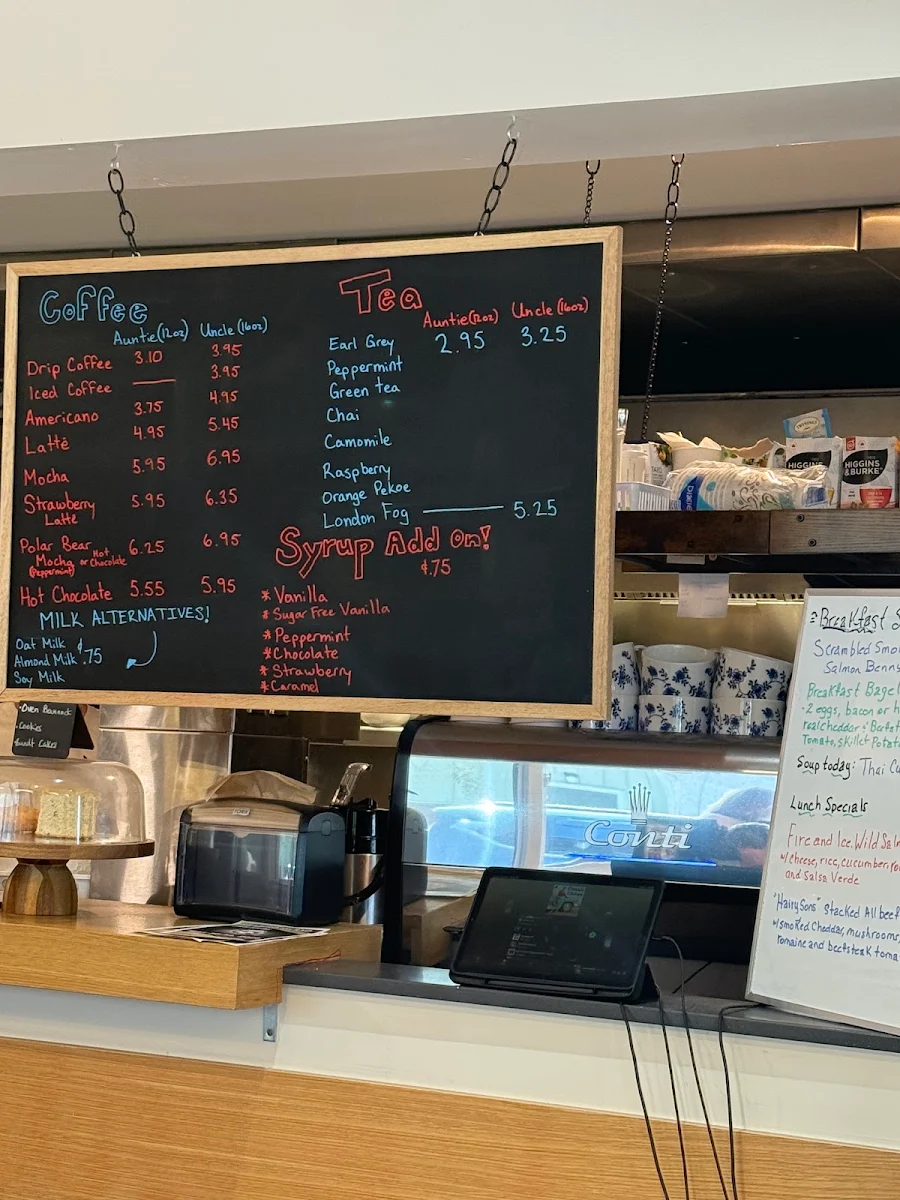 Coffee
Auntie(12oz) Uncle (16oz)
Drip Coffee 3.10 3.95
Iced Coffee —— 3.95
Americano 3.75 4.95
Latté 4.95 5.45
Mocha 5.95 6.95
Strawberry Latte 5.95 6.35
Polar Bear Mocha or Hot Chocolate (Peppermint) 6.25 6.95
Hot Chocolate 5.55 5.95
MILK ALTERNATIVES!
Oat Milk
Almond Milk $.75
Soy Milk
Tea
Auntie(12oz) Uncle (16oz)
Earl Grey 2.95 3.25
Peppermint
Green tea
Chai
Camomile
Raspberry
Orange Pekoe
London Fog —— 5.25
Syrup Add On!
$.75
* Vanilla
* Sugar Free Vanilla
* Peppermint
* Chocolate
* Strawberry
* Caramel
HIGGINS
HIGGINS
&BURKE
Oven Bannock
Cookies
Bundt Cakes
Conti
Breakfast S
Scrambled Smo
Salmon Benny
Breakfast Bagel
2 eggs, bacon or h
real cheddar
Tomato, skillet Potato
Soup today: Thai Cu
Lunch Specials
Fire and Ice Wild Sal
w/ cheese, rice, cucumber,
and Salsa Verde
"Hairy Sons" stacked All beef
w/ smoked Cheddar, mushrooms,
romaine and beefsteak toma